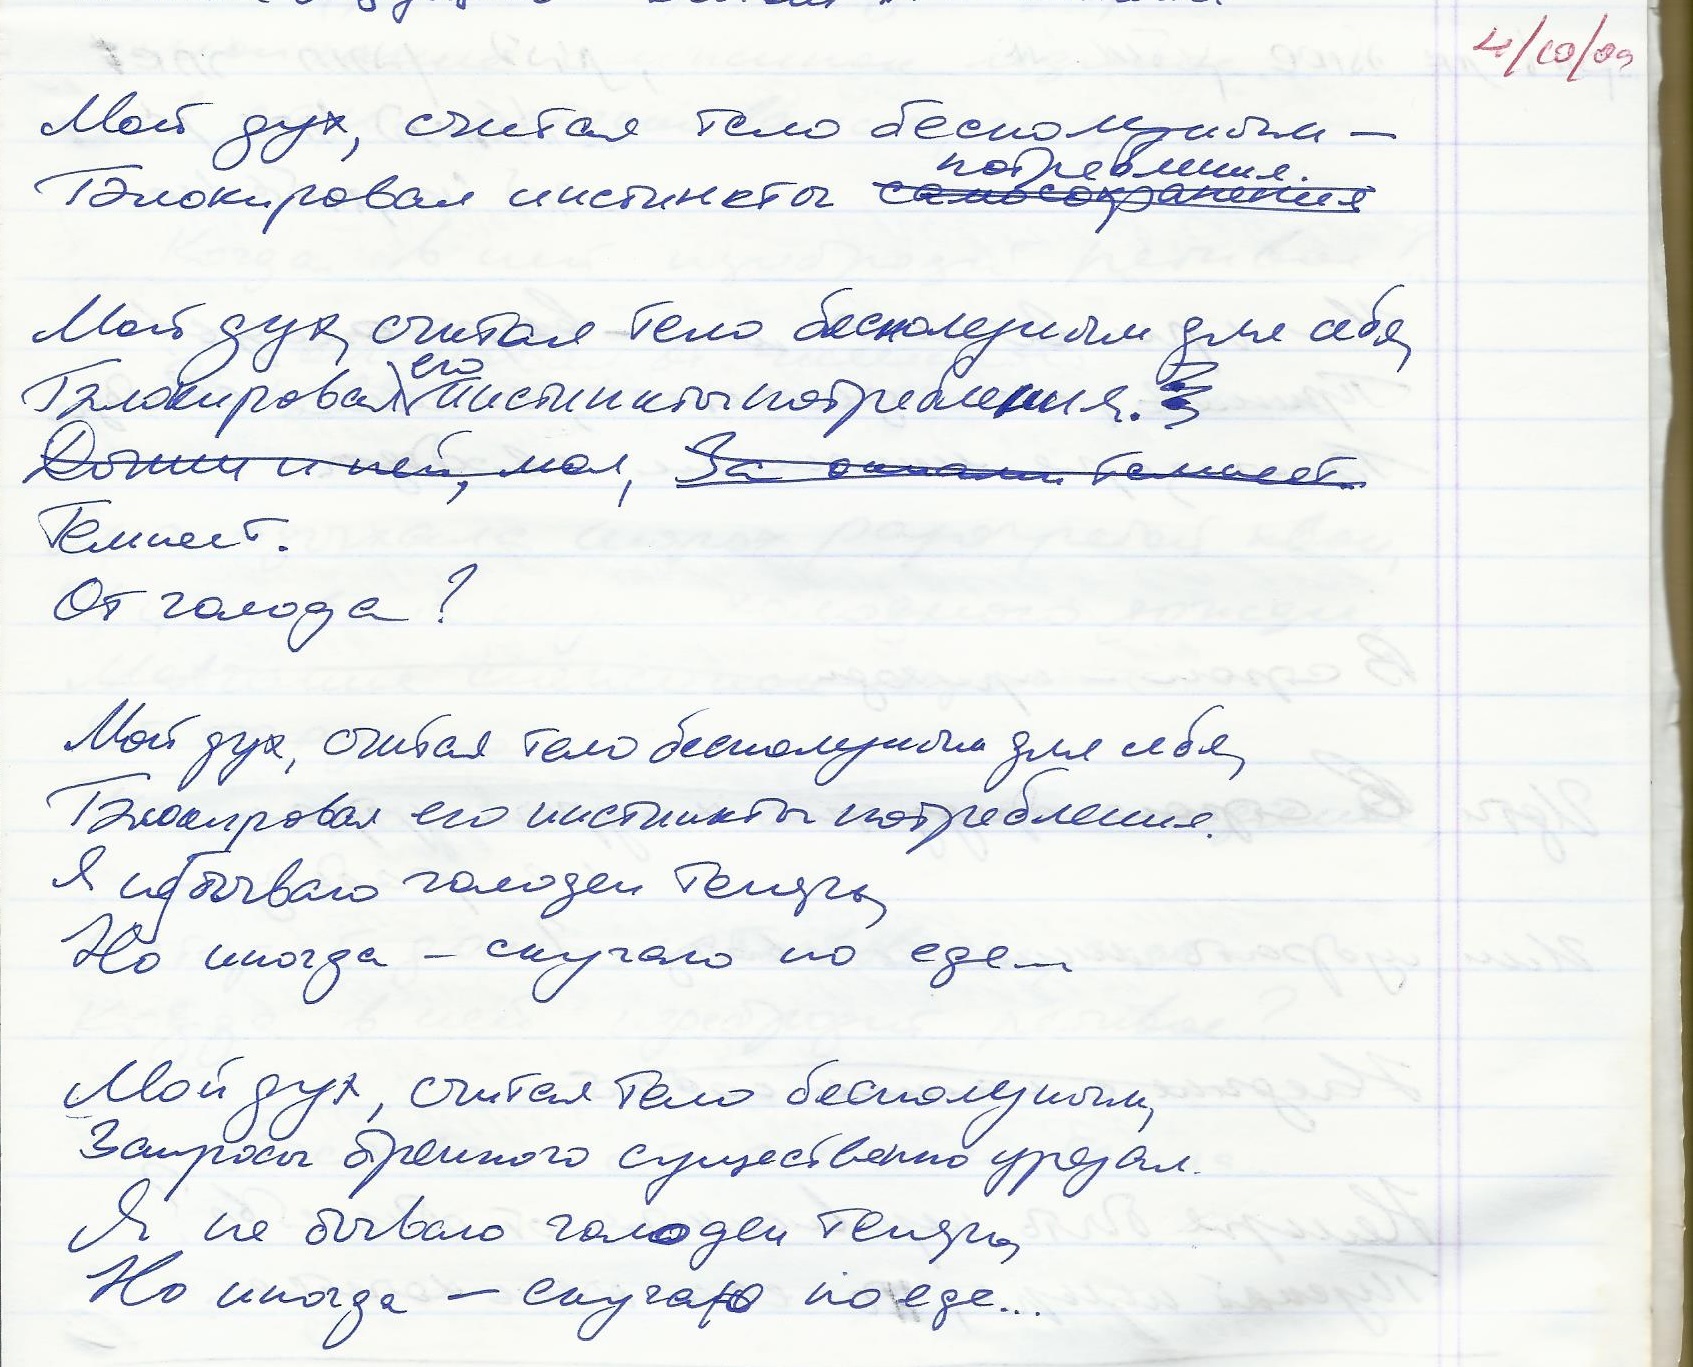 4/10/09
Мой дух, считая тело бесполезным —
потребления.
Блокировал инстинкты самосохранения
Мой дух, считая тело бесполезным для себя,
его
Блокировал инстинкты потребления.
За окнами темнеет.
Темнеет.
От голода?
Мой дух, считая тело бесполезным для себя,
Блокировал его инстинкты потребления.
Я не бываю голоден теперь,
Но иногда — скучаю по еде...
Мой дух, считая тело бесполезным,
Запросы бренного существенно урезал.
Я не бываю голоден теперь,
Но иногда — скучаю по еде...